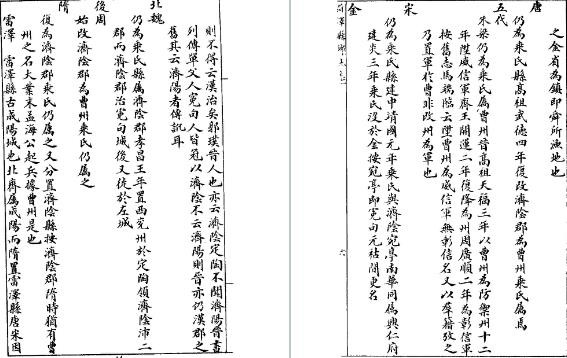 唐
之金省為鎮即舜所漁地也
仍為乘氏縣高祖武德四年復改濟陰郡為曹州乘氏屬焉
五代
朱梁仍為乘氏屬曹州晉高祖天福三年以曹州為防禦州十二
年陞威信軍齊王開運二年復降為州周廣順二年為彰信軍
按舊志馬端臨云陞曹州為威信軍無彰信名又以籍攷之
乃置軍於曹非改州為軍也
宋
仍為乘氏縣建中靖國元年乘氏與濟陰宛亭南華同屬興仁府
金
建炎三年乘氏沒於金按宛亭即冤句元祐間更名
則不得云漢治矣郭璞晉人也亦云濟陰定陶不聞濟陽晉書
列傳單父人冤句人皆冠以濟陰不云濟陽則晉亦仍漢郡之
舊其云濟陽者傳訛耳
北魏
仍為乘氏縣屬濟陰郡孝昌三年置西兗州於定陶領濟陰沛二
郡而濟陰郡治冤句城後又徙於左城
後周
始改濟陰郡為曹州乘氏仍屬之
隋
復為濟陰郡乘氏仍屬之又分置濟陰縣按濟陰郡隋時猶有曹
州之名大業末孟海公起兵據曹州是也
雷澤 雷澤縣古郕陽城也北齊屬郕陽而隋置雷澤縣唐宋因